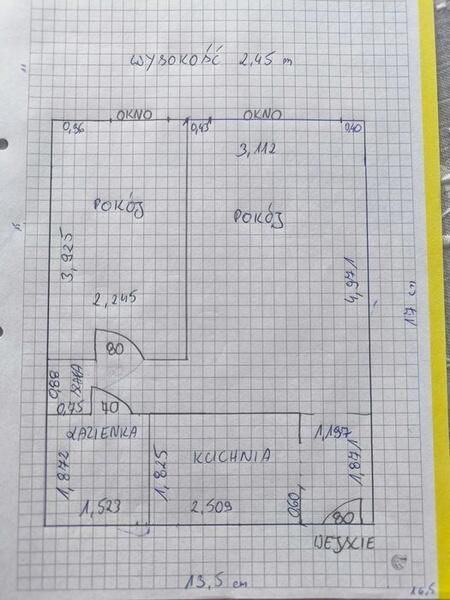 WYSOKOŚĆ 2,45 m
OKNO
OKNO
0,36
0,43
0,40
3,112
POKÓJ
POKÓJ
3,925
4,971
17 cm
2,245
80
0,88
SZAFA
0,75
70
ŁAZIENKA
KUCHNIA
1,197
1,872
1,825
1,871
1,523
2,509
0,60
80
WEJŚCIE
13,5 cm
16,5